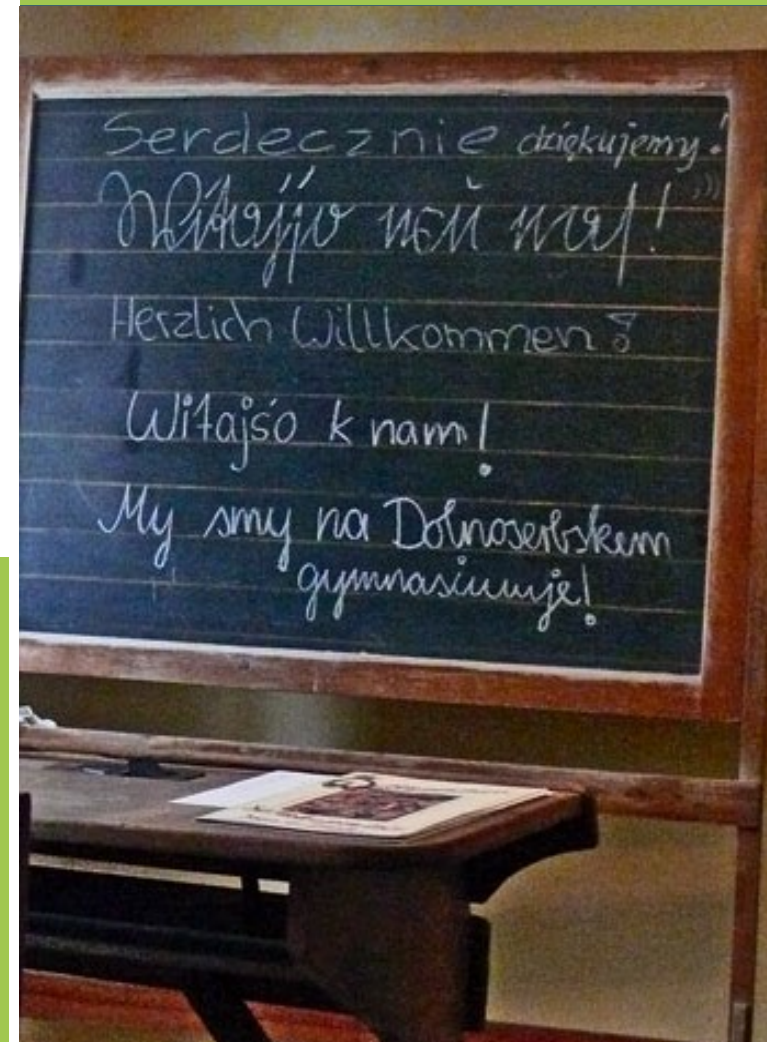 Serdecznie dziękujemy!
Herzlich Willkommen!
Witajśo k nam!
My smy na Dolnoserbskem
gymnasiumje!